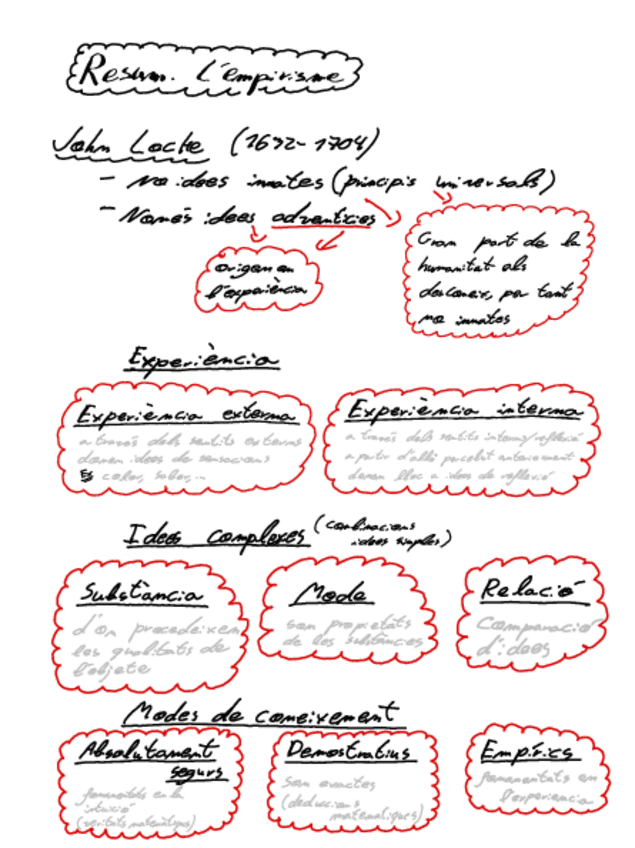 Resum. L'empirisme
John Locke (1632-1704)
- No idees innates (principis universals)
- Només idees adventícies
origen en
l'experiència
Gran part de la
humanitat els
desconeix, per tant
no innates
Experiència
Experiència externa
a través dels sentits externs
donen idees de sensacions
Ex color, sabor,...
Experiència interna
a través dels sentits interns/reflexió
a partir d'allò percebut anteriorment
donen lloc a idees de reflexió
Idees complexes (combinacions
idees simples)
Substància
d'on procedeixen
les qualitats de
l'objete
Mode
son propietats
de les substàncies
Relació
Comparació
d'idees
Modes de coneixement
Absolutament
segurs
fonamentats en la
intuïció
(veritats matemàtiques)
Demostratius
Son exactes
(deduccions
matemàtiques)
Empírics
fonamentats en
l'experiencia